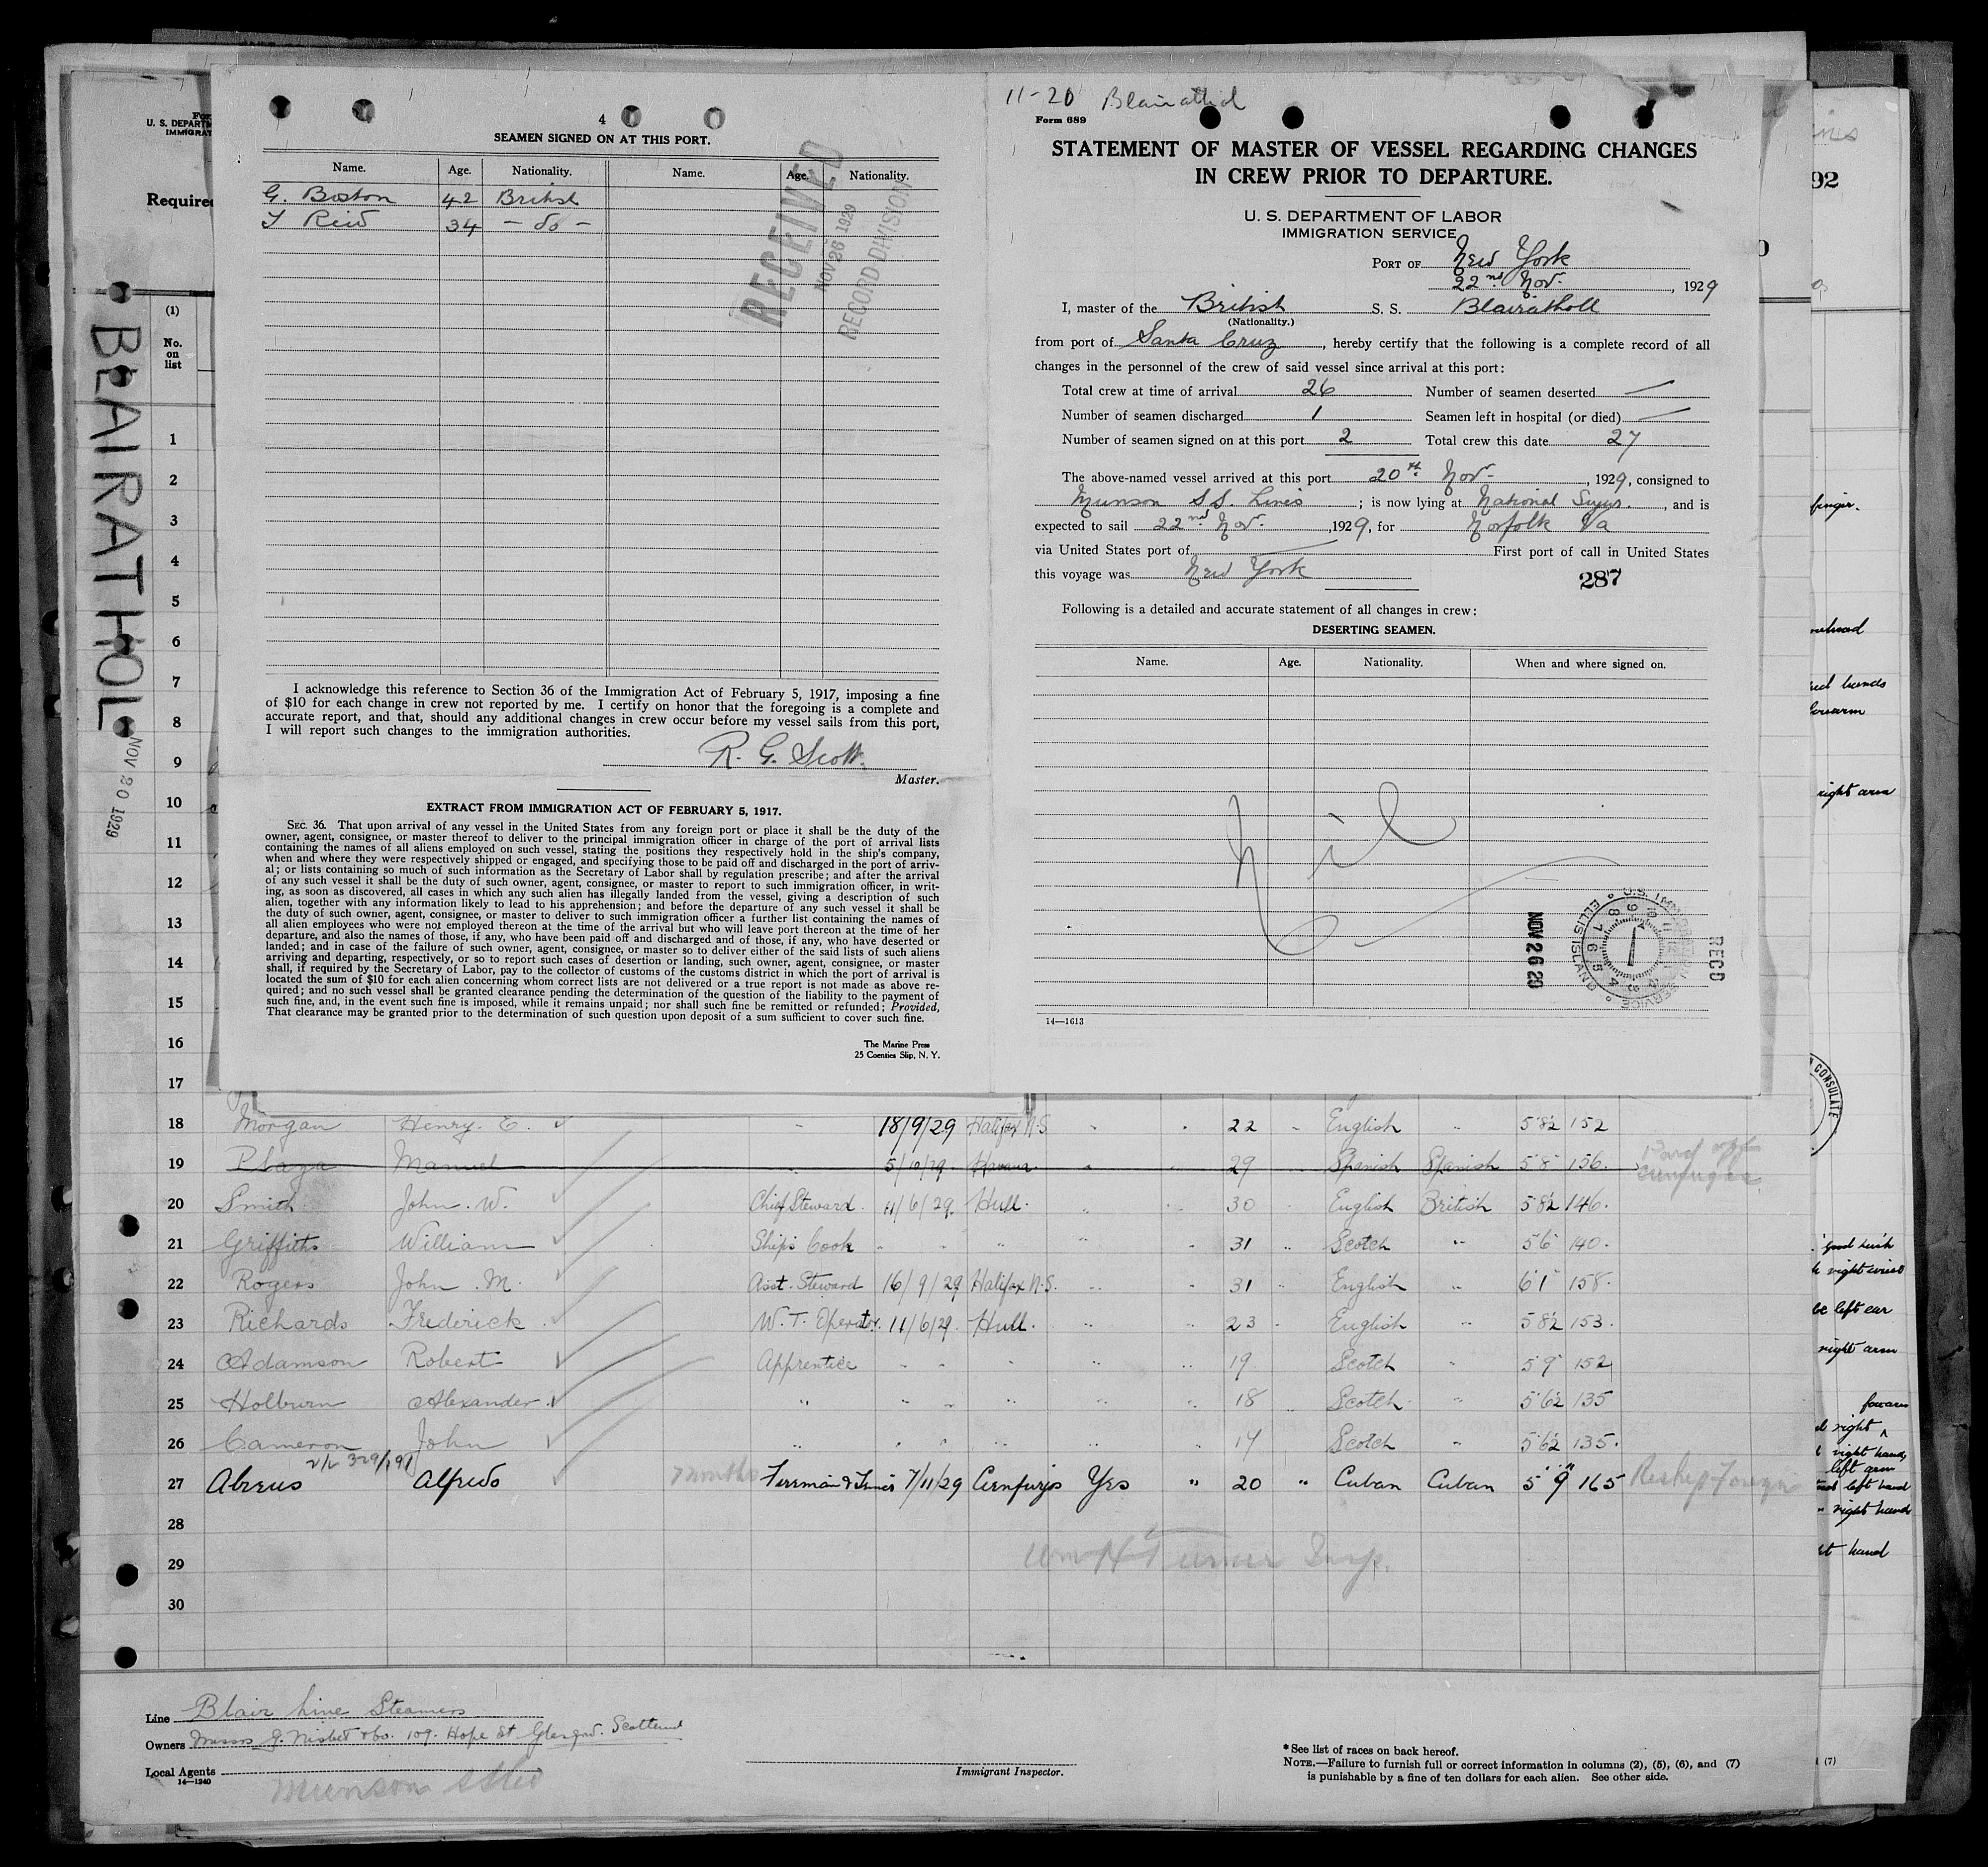 4
SEAMEN SIGNED ON AT THIS PORT.
Name. Age. Nationality. Name. Age. Nationality.
G. Boston 42 British
Reid 34 - do -
RECEIVED
NOV 26 1929
RECORD DIVISION
I acknowledge this reference to Section 36 of the Immigration Act of February 5, 1917, imposing a fine
of $10 for each change in crew not reported by me. I certify on honor that the foregoing is a complete and
accurate report, and that, should any additional changes in crew occur before my vessel sails from this port,
I will report such changes to the immigration authorities.
R. G. Scott.
Master.
EXTRACT FROM IMMIGRATION ACT OF FEBRUARY 5, 1917.
SEC. 36. That upon arrival of any vessel in the United States from any foreign port or place it shall be the duty of the
owner, agent, consignee, or master thereof to deliver to the principal immigration officer in charge of the port of arrival lists
containing the names of all aliens employed on such vessel, stating the positions they respectively hold in the ship's company,
when and where they were respectively shipped or engaged, and specifying those to be paid off and discharged in the port of arriv-
al; or lists containing so much of such information as the Secretary of Labor shall by regulation prescribe; and after the arrival
of any such vessel it shall be the duty of such owner, agent, consignee, or master to report to such immigration officer, in writ-
ing, as soon as discovered, all cases in which any such alien has illegally landed from the vessel, giving a description of such
alien, together with any information likely to lead to his apprehension; and before the departure of any such vessel it shall be
the duty of such owner, agent, consignee, or master to deliver to such immigration officer a further list containing the names of
all alien employees who were not employed thereon at the time of the arrival but who will leave port thereon at the time of her
departure, and also the names of those, if any, who have been paid off and discharged and of those, if any, who have deserted or
landed; and in case of the failure of such owner, agent, consignee, or master so to deliver either of the said lists of such aliens
arriving and departing, respectively, or so to report such cases of desertion or landing, such owner, agent, consignee, or master
shall, if required by the Secretary of Labor, pay to the collector of customs of the customs district in which the port of arrival is
located the sum of $10 for each alien concerning whom correct lists are not delivered or a true report is not made as above re-
quired; and no such vessel shall be granted clearance pending the determination of the question of the liability to the payment of
such fine, and, in the event such fine is imposed, while it remains unpaid; nor shall such fine be remitted or refunded; Provided,
That clearance may be granted prior to the determination of such question upon deposit of a sum sufficient to cover such fine.
The Marine Press
25 Coenties Slip, N. Y.
11-20 Blairatholl
Form 689
STATEMENT OF MASTER OF VESSEL REGARDING CHANGES
IN CREW PRIOR TO DEPARTURE.
U. S. DEPARTMENT OF LABOR
IMMIGRATION SERVICE
PORT OF New York
22nd Nov. , 1929
I, master of the British S. S. Blairatholl
(Nationality.)
from port of Santa Cruz , hereby certify that the following is a complete record of all
changes in the personnel of the crew of said vessel since arrival at this port:
Total crew at time of arrival 26 Number of seamen deserted
Number of seamen discharged 1 Seamen left in hospital (or died)
Number of seamen signed on at this port 2 Total crew this date 27
The above-named vessel arrived at this port 20th Nov- , 1929, consigned to
Munson S.S. Lines ; is now lying at National Sugar. , and is
expected to sail 22nd Nov. , 1929, for Norfolk Va
via United States port of First port of call in United States
this voyage was New York
287
Following is a detailed and accurate statement of all changes in crew:
DESERTING SEAMEN.
Name. Age. Nationality. When and where signed on.
Nil
NOV 26 29
RECD
14—1613
For
U. S. DEPARTM
IMMIGRAT
Required
BLAIRATHOL
NOV 20 1929
(1)
No.
on
list
1
2
3
4
5
6
7
8
9
10
11
12
13
14
15
16
17
18 Morgan Henry. E. 18/9/29 Halifax N.S. 22 English 5 8½ 152
19 Plaza Manuel 5/10/29 Havana. 29 Spanish Spanish 5 8 156.
20 Smith John. W. Chief Steward. 11/6/29. Hull. 30 English British 5 8½ 146.
21 Griffiths William Ships Cook 31 Scotch 5 6 140.
22 Rogers John. M. Asst. Steward 16/9/29 Halifax N.S. 31 English 6 1 158.
23 Richards Frederick W. T. Operator. 11/6/29. Hull. 23 English 5 8½ 153.
24 Adamson Robert Apprentice 19 Scotch 5 9 152
25 Holburn Alexander 18 Scotch 5 6½ 135
26 Cameron John 17 Scotch 5 6½ 135.
27 Abreus Alfredo 7 months 7/11/29 Cienfuegos Yes " 20 " Cuban Cuban 5' 9" 165 Reship Foreign
28
29 Wm H Turner Insp.
30
Line Blair Line Steamers
Owners Messrs G. Nisbet & Co. 109. Hope St Glasgow. Scotland
Local Agents Munson
14—1240
Immigrant Inspector.
* See list of races on back hereof.
NOTE.—Failure to furnish full or correct information in columns (2), (5), (6), and (7)
is punishable by a fine of ten dollars for each alien. See other side.
92
finger.
right arm
CONSULATE
left ear
right arm
left arm
left hand
right hand
hand
(7)